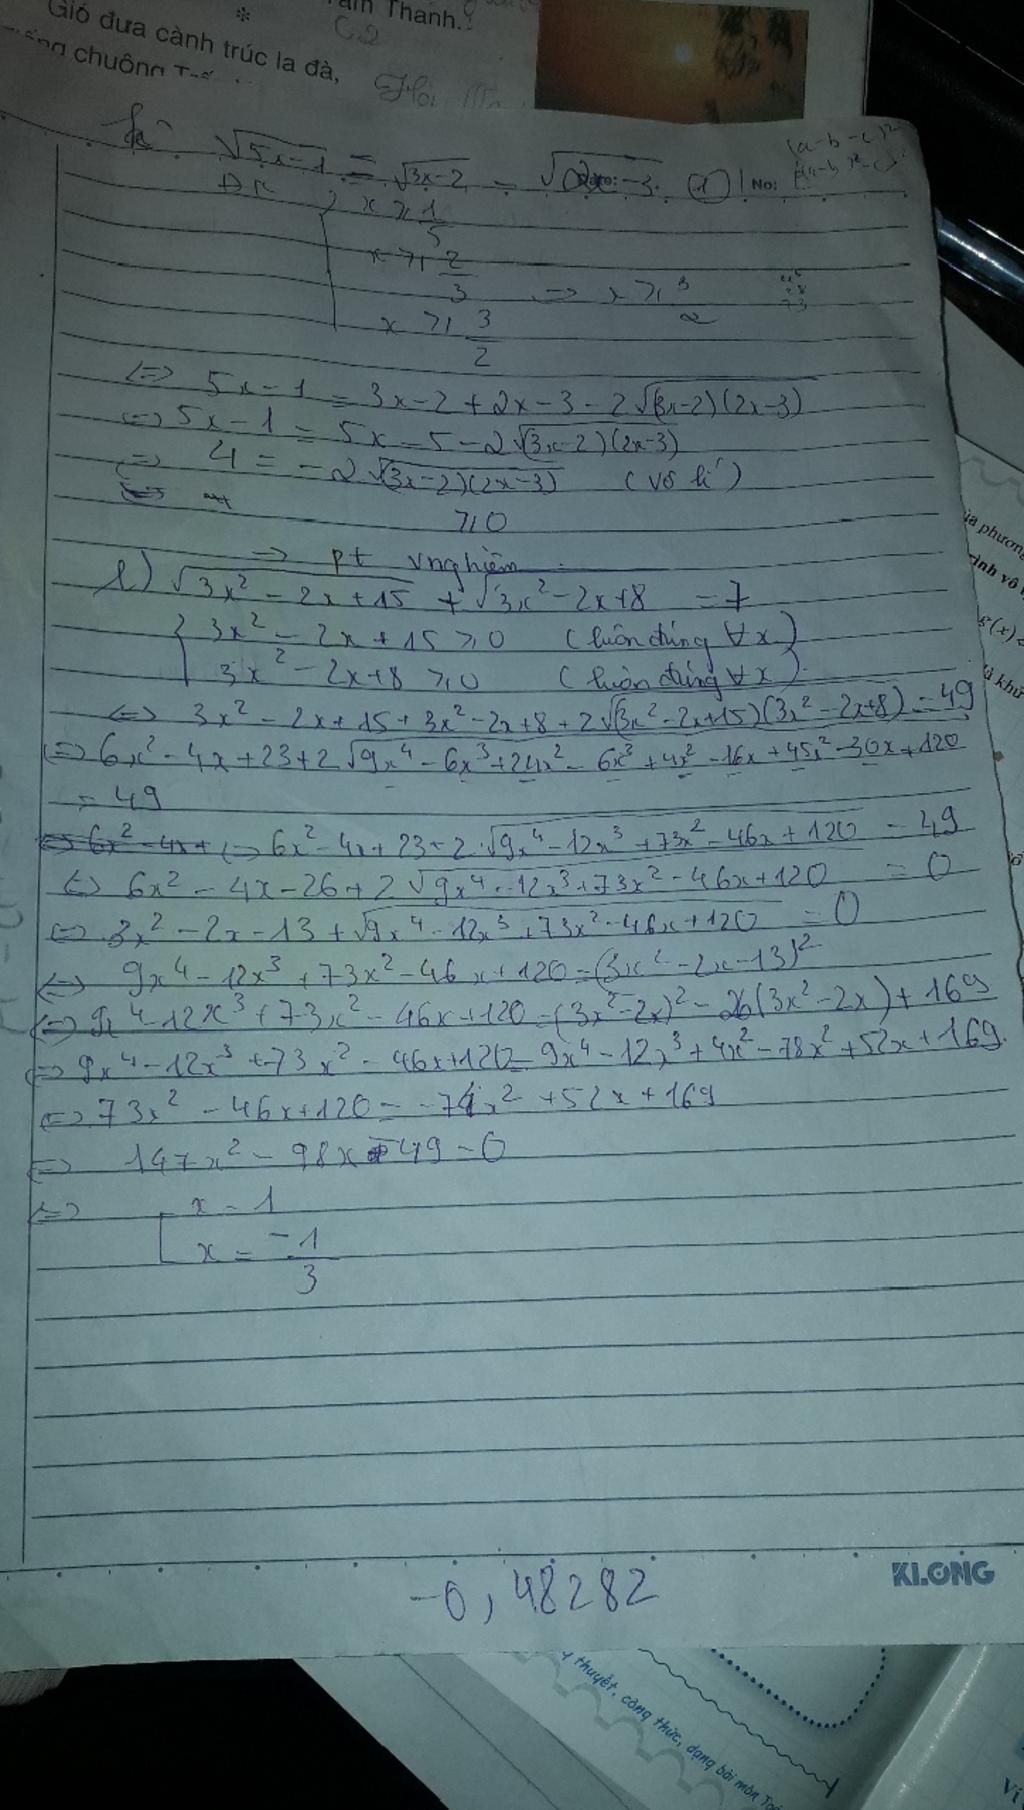 âm Thanh.
Gió đưa cành trúc la đà,
chuông
k) √(5x-1) = √(3x-2) - √(2x-3) (1) No:
(a-b-c)²
ĐK { x ≥ 1/5
x ≥ 2/3 => x ≥ 3/2
x ≥ 3/2
<=> 5x-1 = 3x-2+2x-3-2√((3x-2)(2x-3))
<=> 5x-1 = 5x-5-2√((3x-2)(2x-3))
<=> 4 = -2√((3x-2)(2x-3)) (vô lí)
≥ 0
=> pt vnghiệm
l) √(3x²-2x+15) + √(3x²-2x+8) = 7
{ 3x²-2x+15 ≥ 0 (luôn đúng ∀x)
3x²-2x+8 ≥ 0 (luôn đúng ∀x)
<=> 3x²-2x+15+3x²-2x+8+2√((3x²-2x+15)(3x²-2x+8)) = 49
<=> 6x²-4x+23+2√(9x⁴-6x³+24x²-6x³+4x²-16x+45x²-30x+120)
= 49
<=> 6x²-4x+ <=> 6x²-4x+23+2√(9x⁴-12x³+73x²-46x+120) = 49
<=> 6x²-4x-26+2√(9x⁴-12x³+73x²-46x+120) = 0
<=> 3x²-2x-13+√(9x⁴-12x³+73x²-46x+120) = 0
<=> 9x⁴-12x³+73x²-46x+120 = (3x²-2x-13)²
<=> 9x⁴-12x³+73x²-46x+120 = (3x²-2x)²-26(3x²-2x)+169
<=> 9x⁴-12x³+73x²-46x+120 = 9x⁴-12x³+4x²-78x²+52x+169
<=> 73x²-46x+120 = -74x²+52x+169
<=> 147x²-98x-49=0
<=> [ x = 1
x = -1/3
KLONG
-0,48282
thuyết, công thức, dạng bài môn
ủa phương
rình vô
g(x)
khử